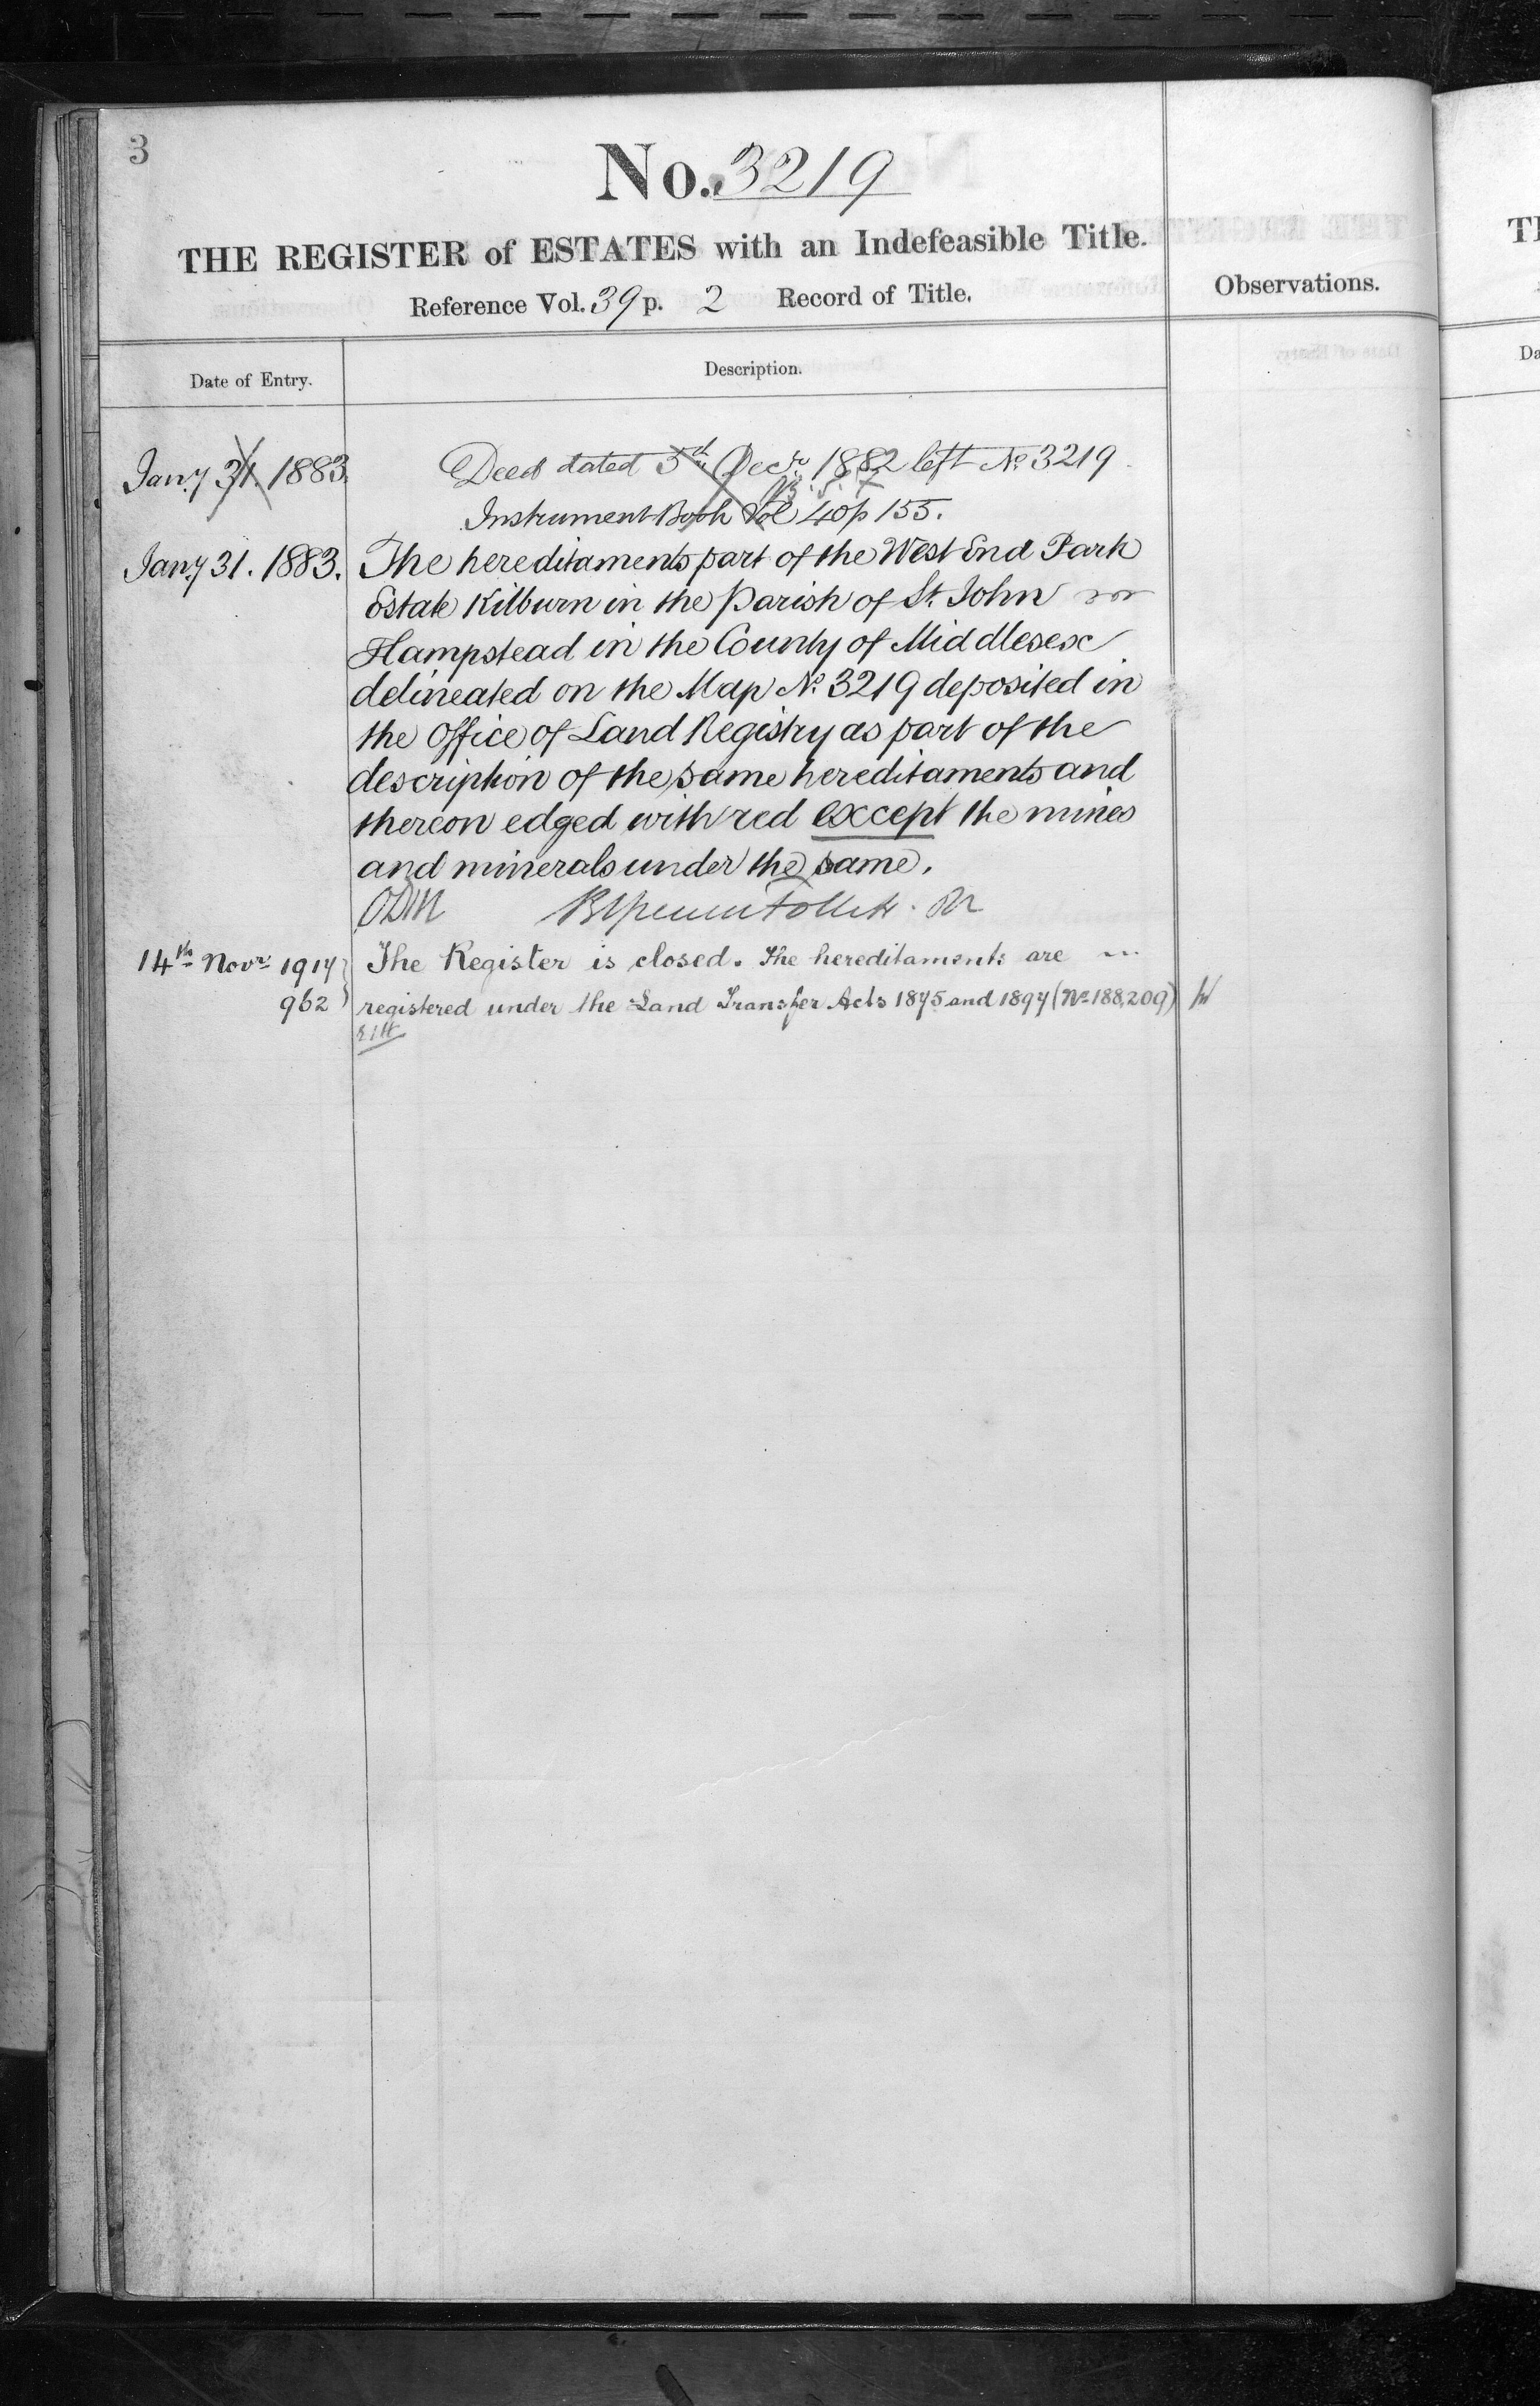 3
No. 3219
THE REGISTER of ESTATES with an Indefeasible Title.
Reference Vol. 39 p. 2 Record of Title.
Observations.
Date of Entry.
Description.
Jany 31. 1883.
Deed dated 5th Decr. 1882 left No. 3219.
Instrument Book Vol 40 p 155.
Jany 31. 1883.
The hereditaments part of the West End Park
Estate Kilburn in the Parish of St. John
Hampstead in the County of Middlesex
delineated on the Map No. 3219 deposited in
the Office of Land Registry as part of the
description of the same hereditaments and
thereon edged with red except the mines
and minerals under the same.
14th Novr 1914
962
The Register is closed. The hereditaments are
registered under the Land Transfer Acts 1875 and 1897 (No 188,209)